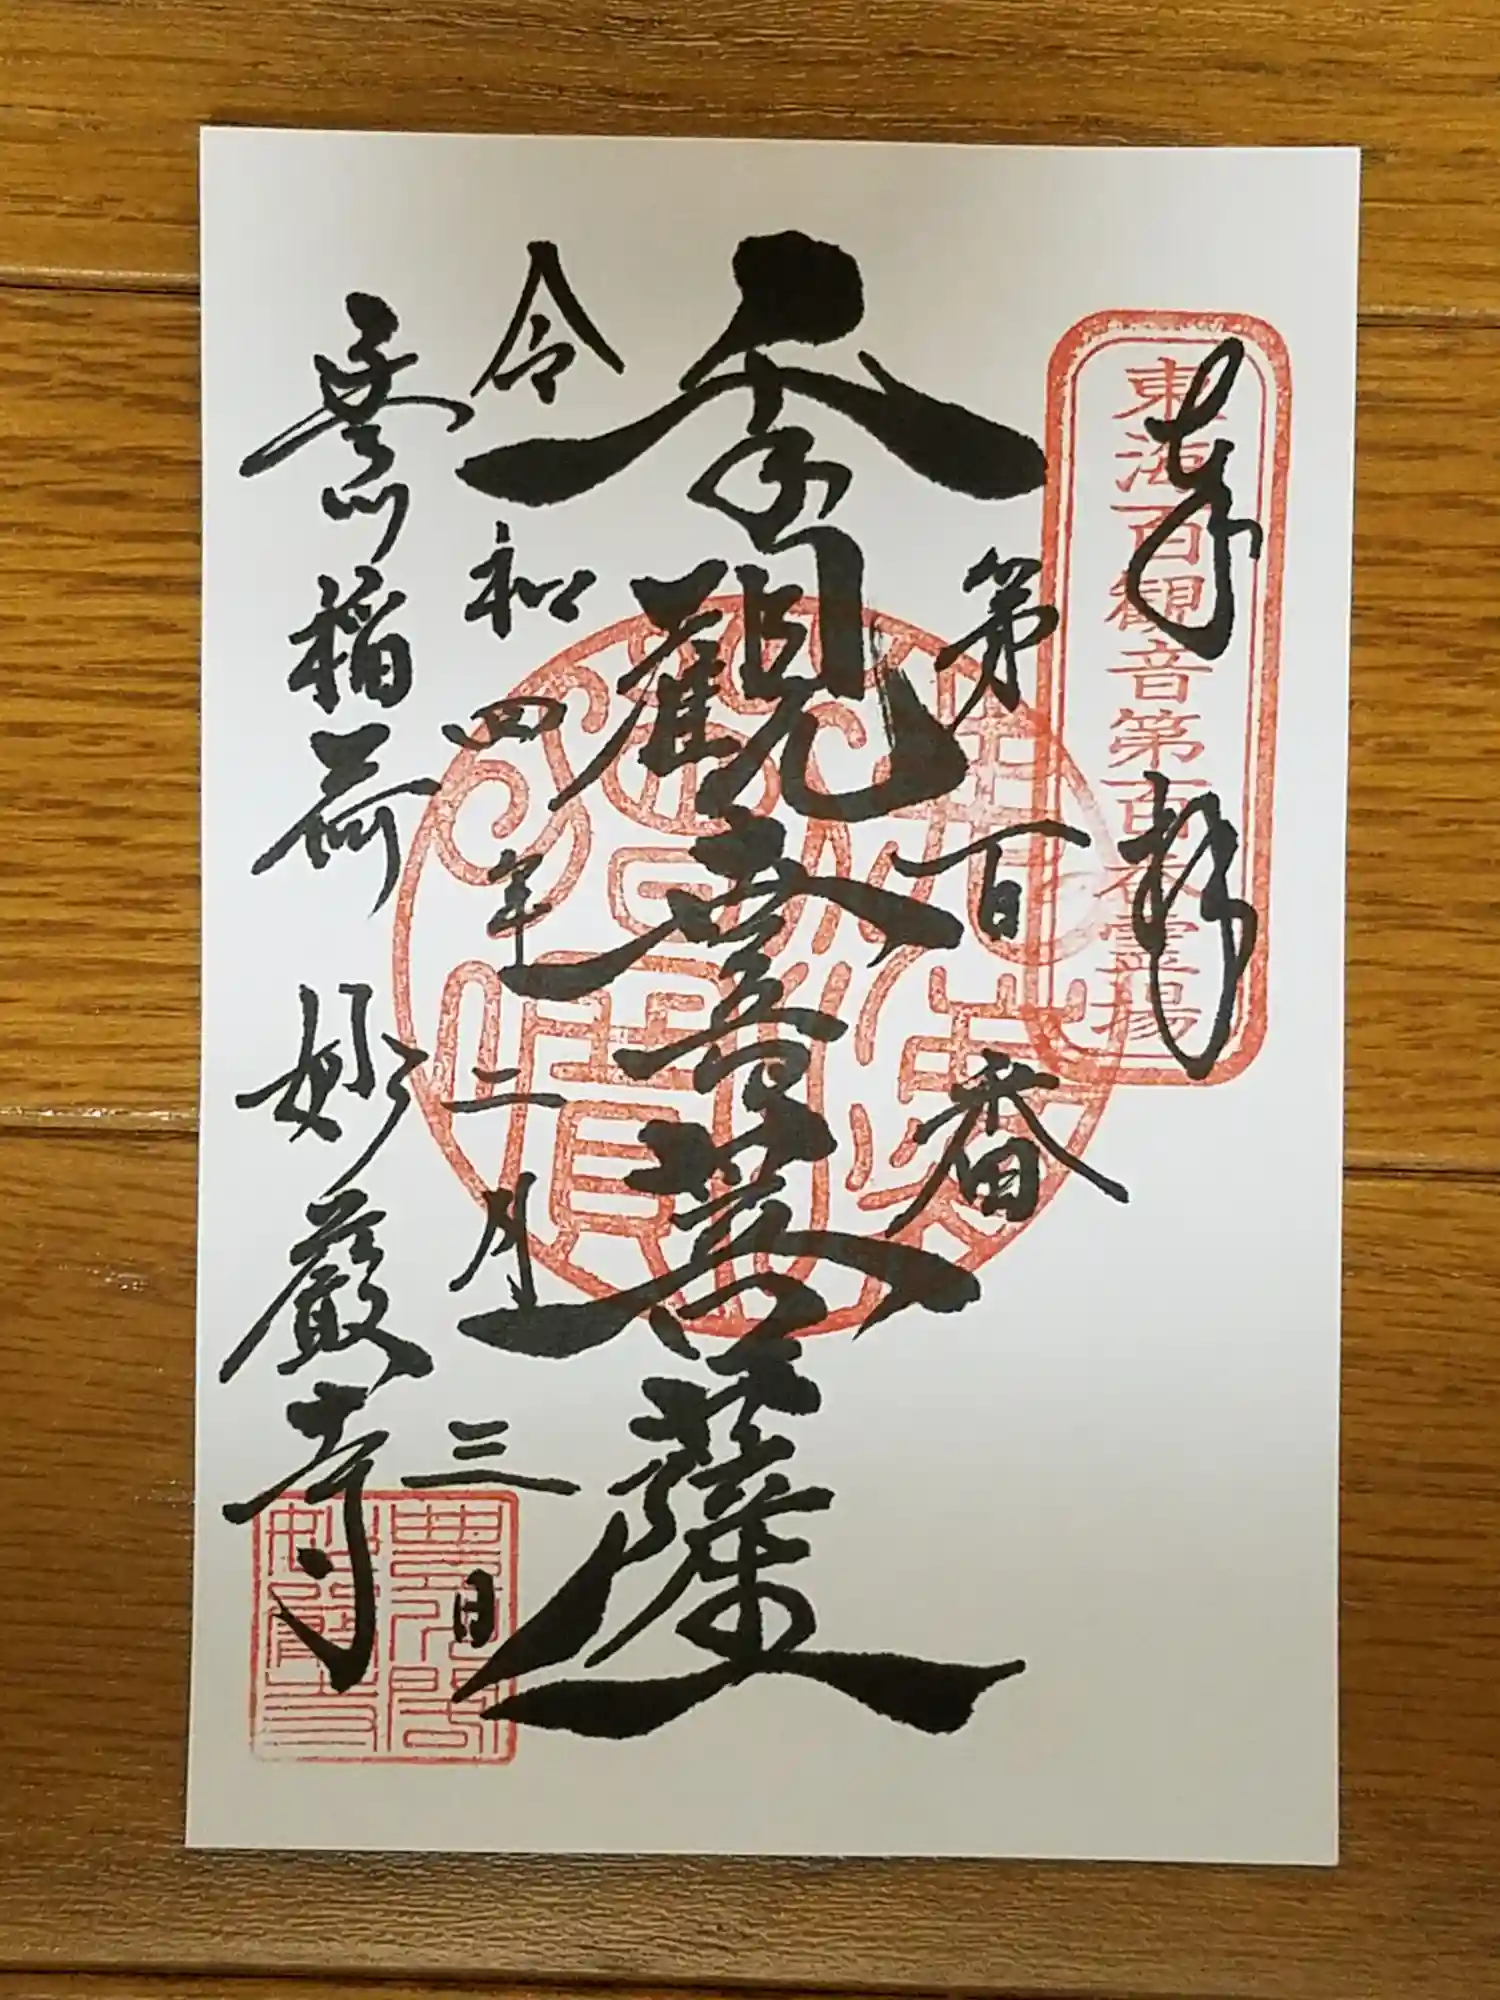 東海百観音第百番霊場
奉拝
第百番
千手觀世音菩薩
令和四年二月三日
豊川稲荷 妙厳寺